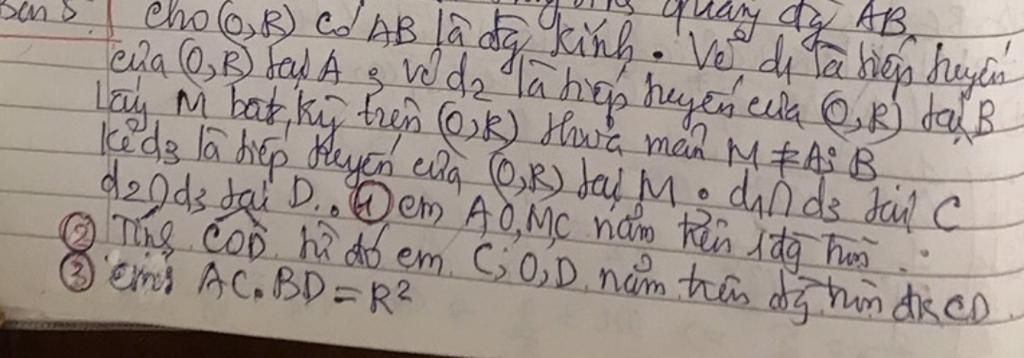 Bài 5. Cho (O,R) có AB là đg kính. Vẽ d1 là tiếp tuyến
của (O,R) tại A ; vẽ d2 là tiếp tuyến của (O,R) tại B
Lấy M bất kỳ trên (O,R) thỏa mãn M ≠ A; B
Kẻ d3 là tiếp tuyến của (O,R) tại M. d1∩d3 tại C
d2∩d3 tại D. ① cm AO,M,C nằm trên 1 đg tròn.
② Tính COD từ đó cm C; O, D nằm trên đg tròn đk CD
③ cm: AC.BD = R²